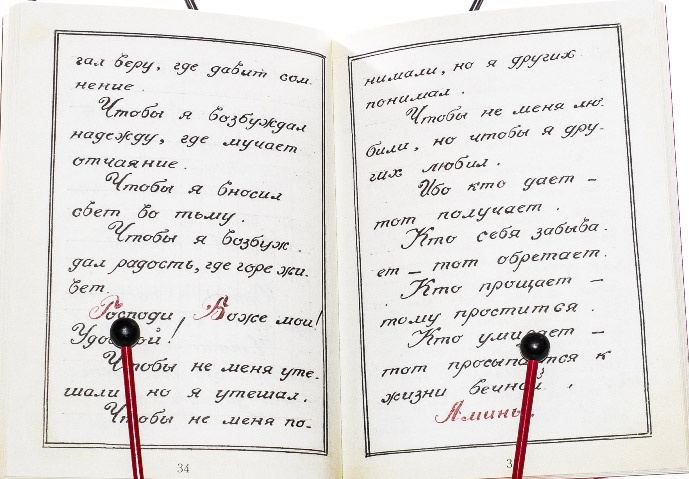 гал веру, где давит сом-
нение.
Чтобы я возбуждал
надежду, где мучает
отчаяние.
Чтобы я вносил
свет во тьму.
Чтобы я возбуж-
дал радость, где горе жи-
вет.
Господи, Боже мой!
Удостой!
Чтобы не меня уте-
шали, но я утешал.
Чтобы не меня по-
34
нимали, но я других
понимал.
Чтобы не меня лю-
били, но чтобы я дру-
гих любил.
Ибо кто дает –
тот получает.
Кто себя забыва-
ет – тот обретает.
Кто прощает –
тому простится.
Кто умирает –
тот просыпается к
жизни вечной.
Аминь.